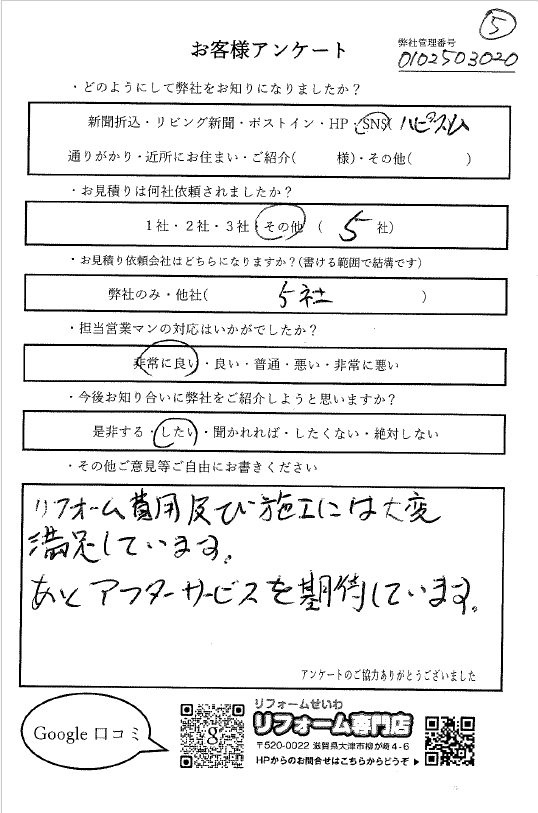 ⑤
お客様アンケート
弊社管理番号
0102503020
・どのようにして弊社をお知りになりましたか？
新聞折込・リビング新聞・ポストイン・HP・SNS ハピすむ
通りがかり・近所にお住まい・ご紹介(　　　様)・その他(　　　　)
・お見積りは何社依頼されましたか？
1社・2社・3社・その他 （ 5 社）
・お見積り依頼会社はどちらになりますか？(書ける範囲で結構です)
弊社のみ・他社(　　5社　　)
・担当営業マンの対応はいかがでしたか？
非常に良い・良い・普通・悪い・非常に悪い
・今後お知り合いに弊社をご紹介しようと思いますか？
是非する・したい・聞かれれば・したくない・絶対しない
・その他ご意見等ご自由にお書きください
リフォーム費用及び施工には大変
満足しています。
あとアフターサービスを期待しています。
アンケートのご協力ありがとうございました
Google 口コミ
g
リフォームせいわ
リフォーム専門店
〒520-0022 滋賀県大津市柳が崎4-6
HPからのお問合せはこちらからどうぞ▶